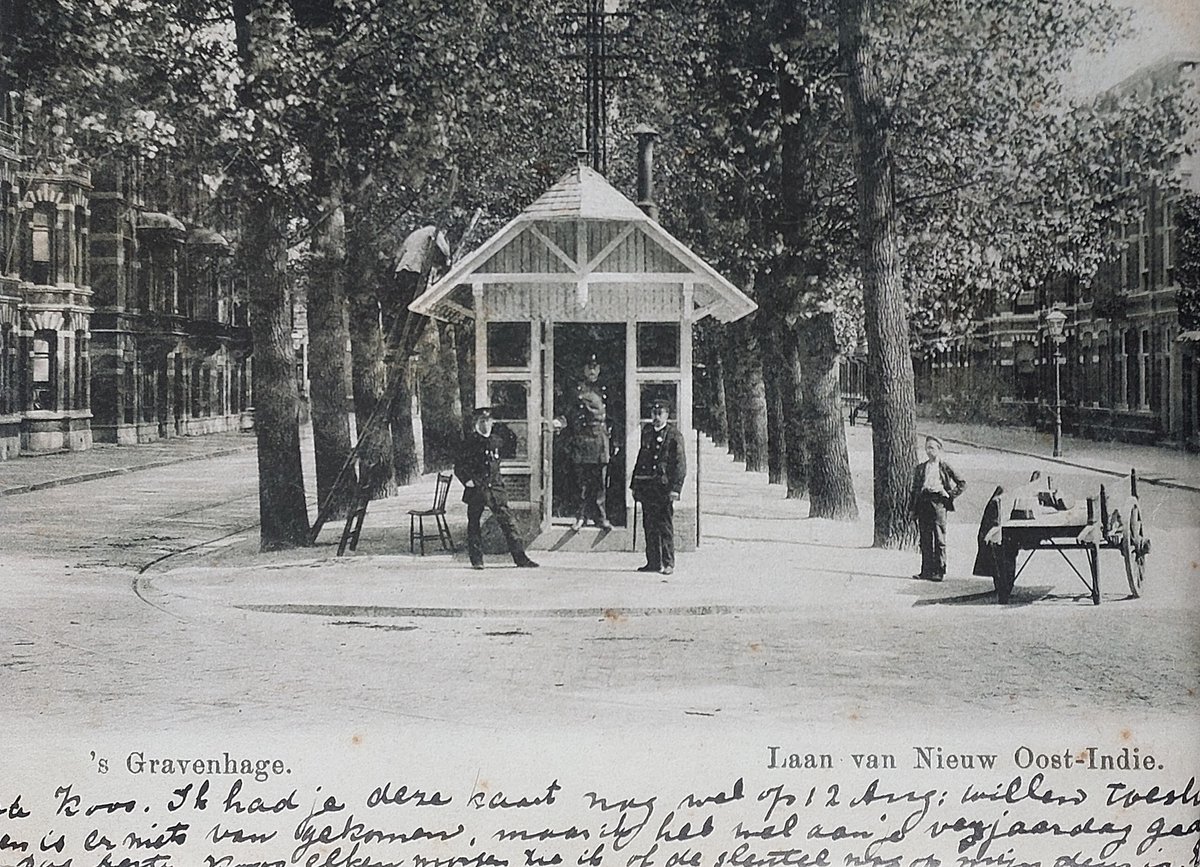 's Gravenhage.
Laan van Nieuw Oost-Indie.
Koos. Ik had je deze kaart nog wel op 12 Aug: willen
is er niets van gekomen, maar ik heb wel aan je verjaardag
Koos elken morgen ik of de sleutel nog op mijn